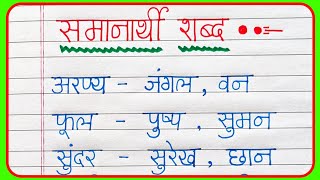 समानार्थी शब्द
अरण्य - जंगल, वन
फूल - पुष्प, सुमन
सुंदर - सुरेख, छान